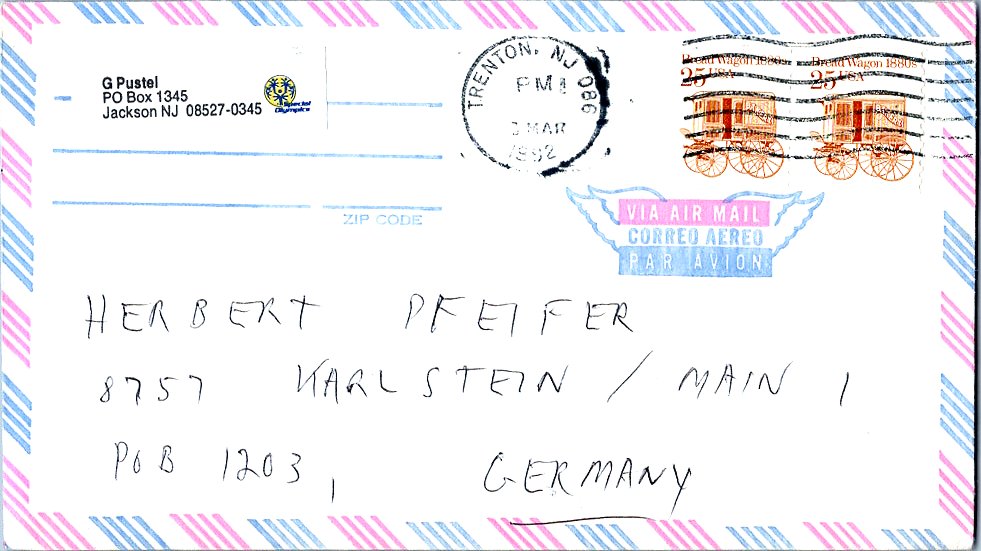 G Pustel
PO Box 1345
Jackson NJ 08527-0345
Special
Olympics
ZIP CODE
TRENTON, NJ 086
PM
MAR
1992
Bread Wagon 1880s
25 USA
Bread Wagon 1880s
25 USA
VIA AIR MAIL
CORREO AEREO
PAR AVION
HERBERT PFEIFER
8757 KARLSTEIN / MAIN 1
POB 1203, GERMANY